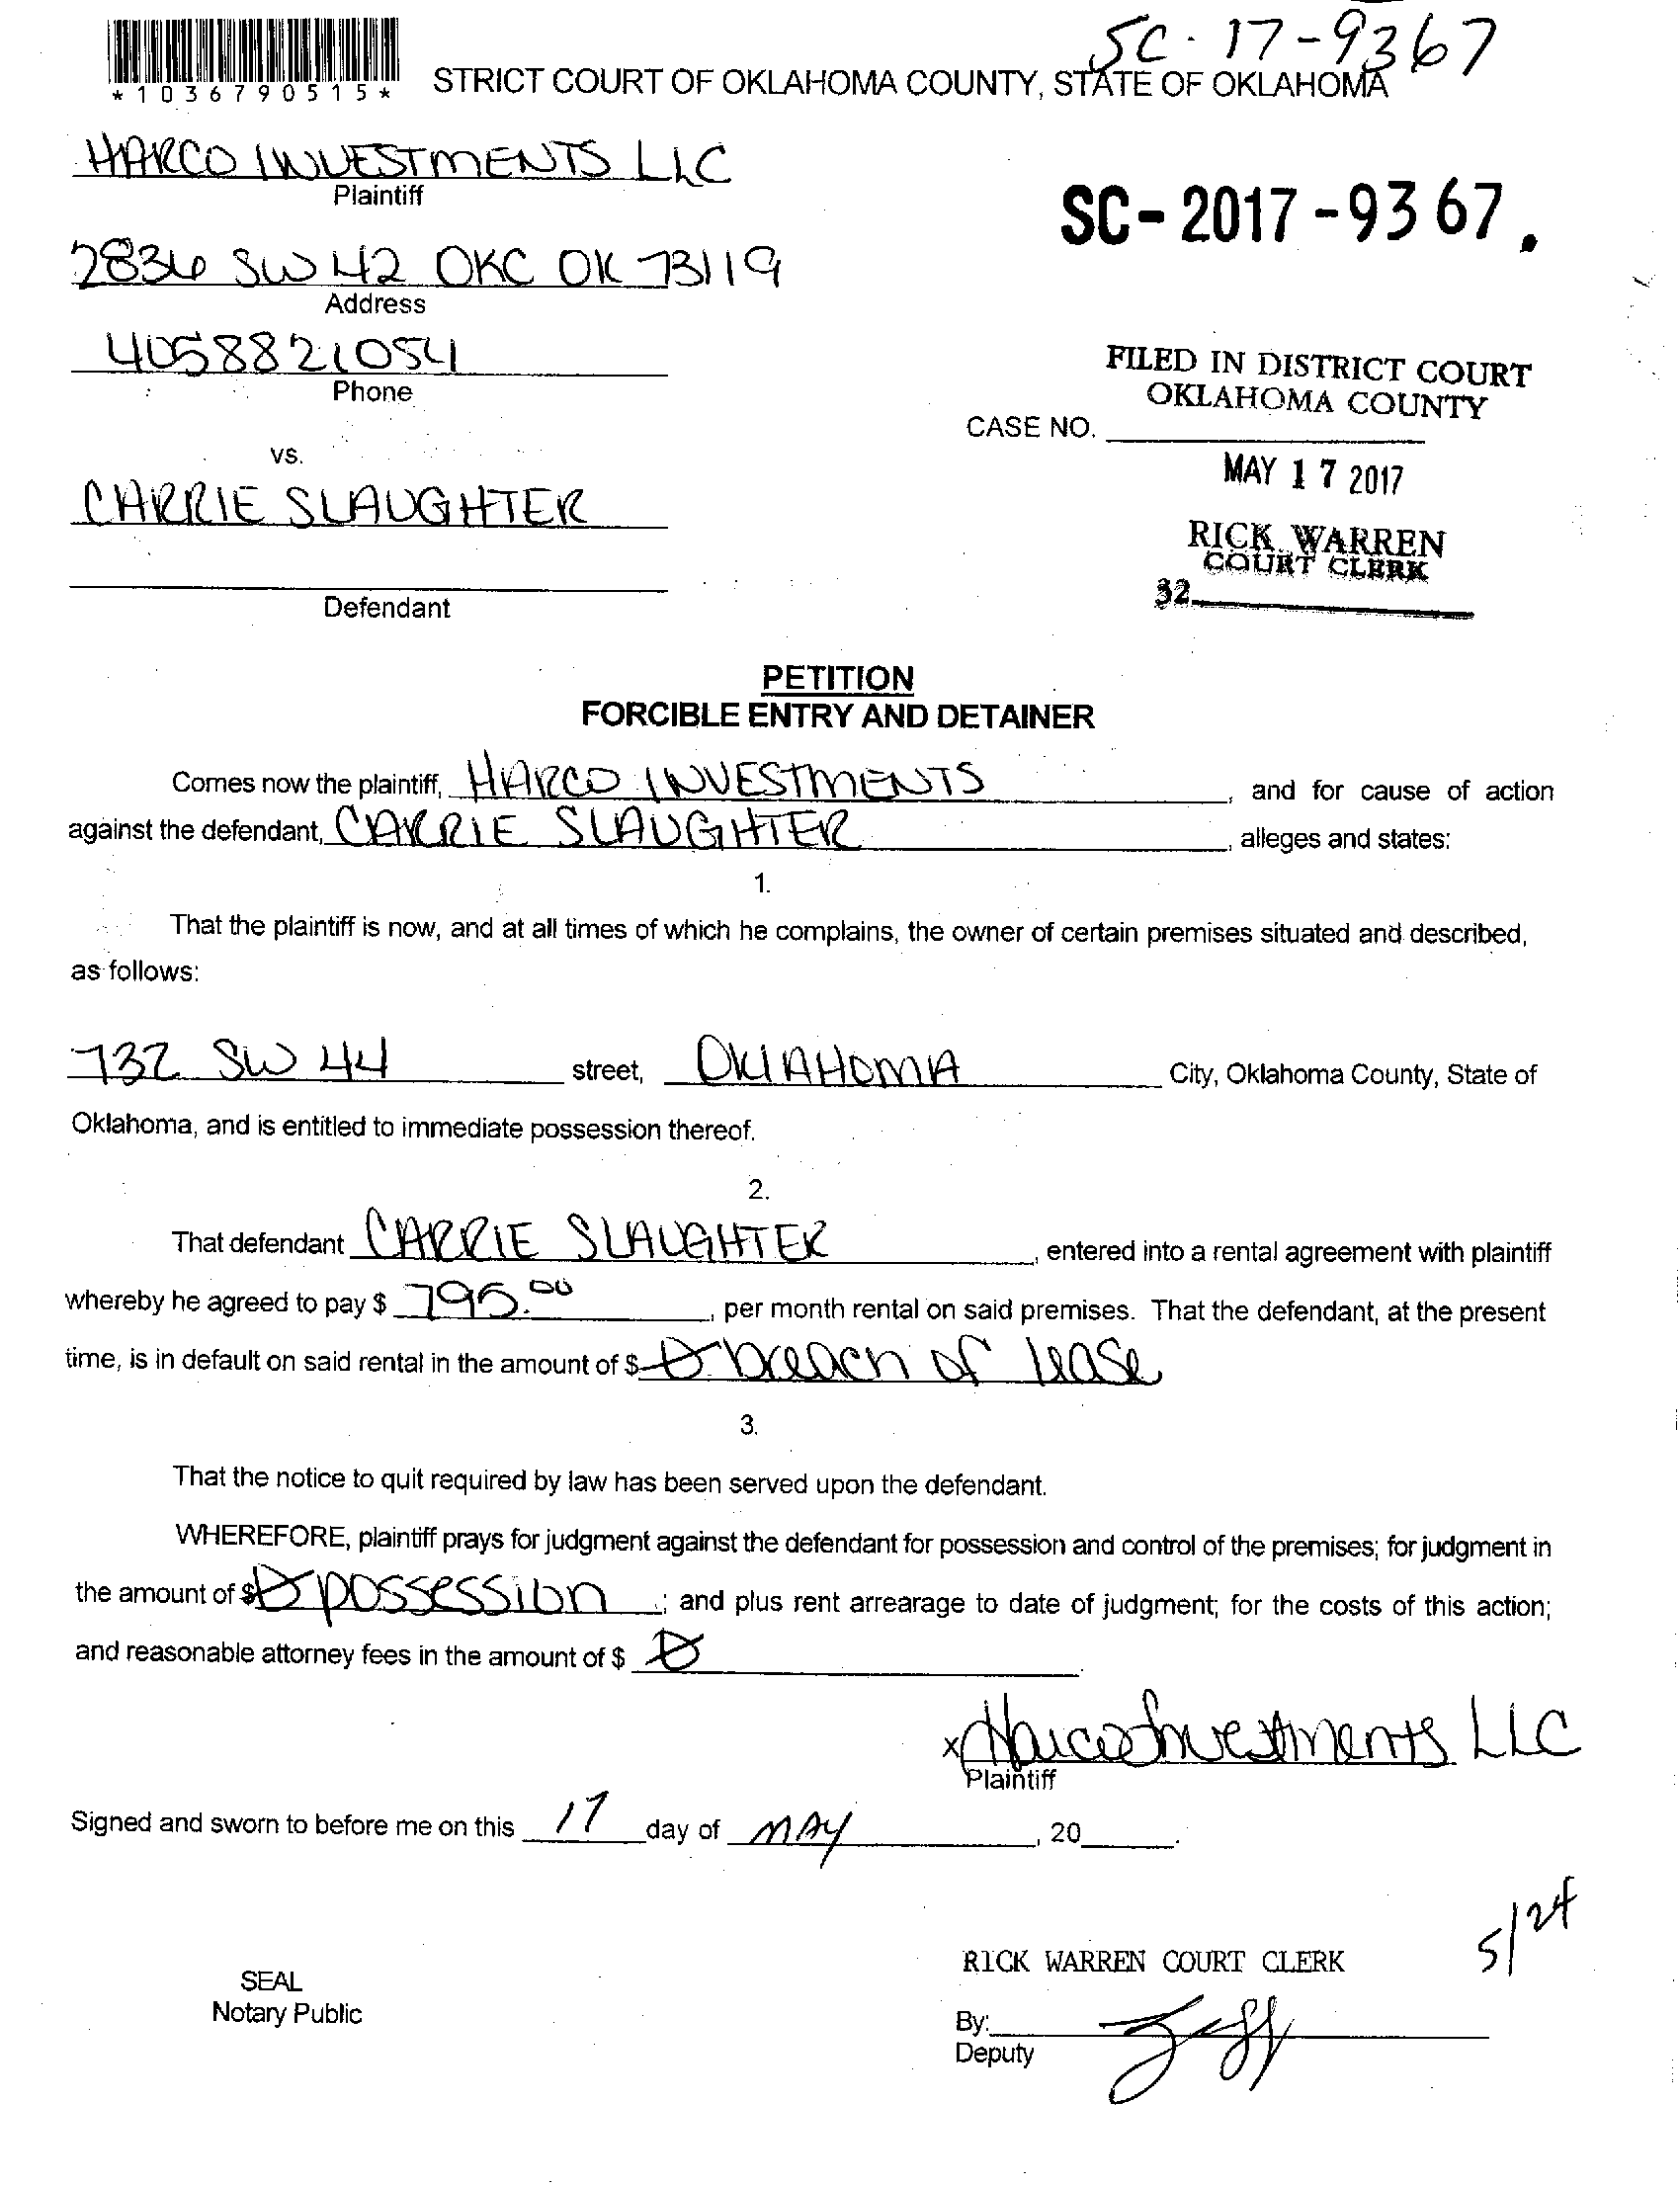 SC-17-9367
*1036790515*
STRICT COURT OF OKLAHOMA COUNTY, STATE OF OKLAHOMA
HARCO INVESTMENTS LLC
Plaintiff
SC-2017-9367.
2836 SW 42 OKC OK 73119
Address
4058821054
Phone
FILED IN DISTRICT COURT
OKLAHOMA COUNTY
CASE NO.
vs.
MAY 17 2017
CARRIE SLAUGHTER
RICK WARREN
COURT CLERK
32
Defendant
PETITION
FORCIBLE ENTRY AND DETAINER
Comes now the plaintiff, HARCO INVESTMENTS, and for cause of action
against the defendant, CARRIE SLAUGHTER, alleges and states:
1.
That the plaintiff is now, and at all times of which he complains, the owner of certain premises situated and described,
as follows:
732 SW 44 street, OKLAHOMA City, Oklahoma County, State of
Oklahoma, and is entitled to immediate possession thereof.
2.
That defendant CARRIE SLAUGHTER, entered into a rental agreement with plaintiff
whereby he agreed to pay $ 795.00, per month rental on said premises. That the defendant, at the present
time, is in default on said rental in the amount of $ 0 breach of lease
3.
That the notice to quit required by law has been served upon the defendant.
WHEREFORE, plaintiff prays for judgment against the defendant for possession and control of the premises; for judgment in
the amount of $ 0 possession; and plus rent arrearage to date of judgment; for the costs of this action;
and reasonable attorney fees in the amount of $ 0.
x Harco Investments LLC
Plaintiff
Signed and sworn to before me on this 17 day of MAY, 20.
5/24
RICK WARREN COURT CLERK
SEAL
Notary Public
By:
Deputy